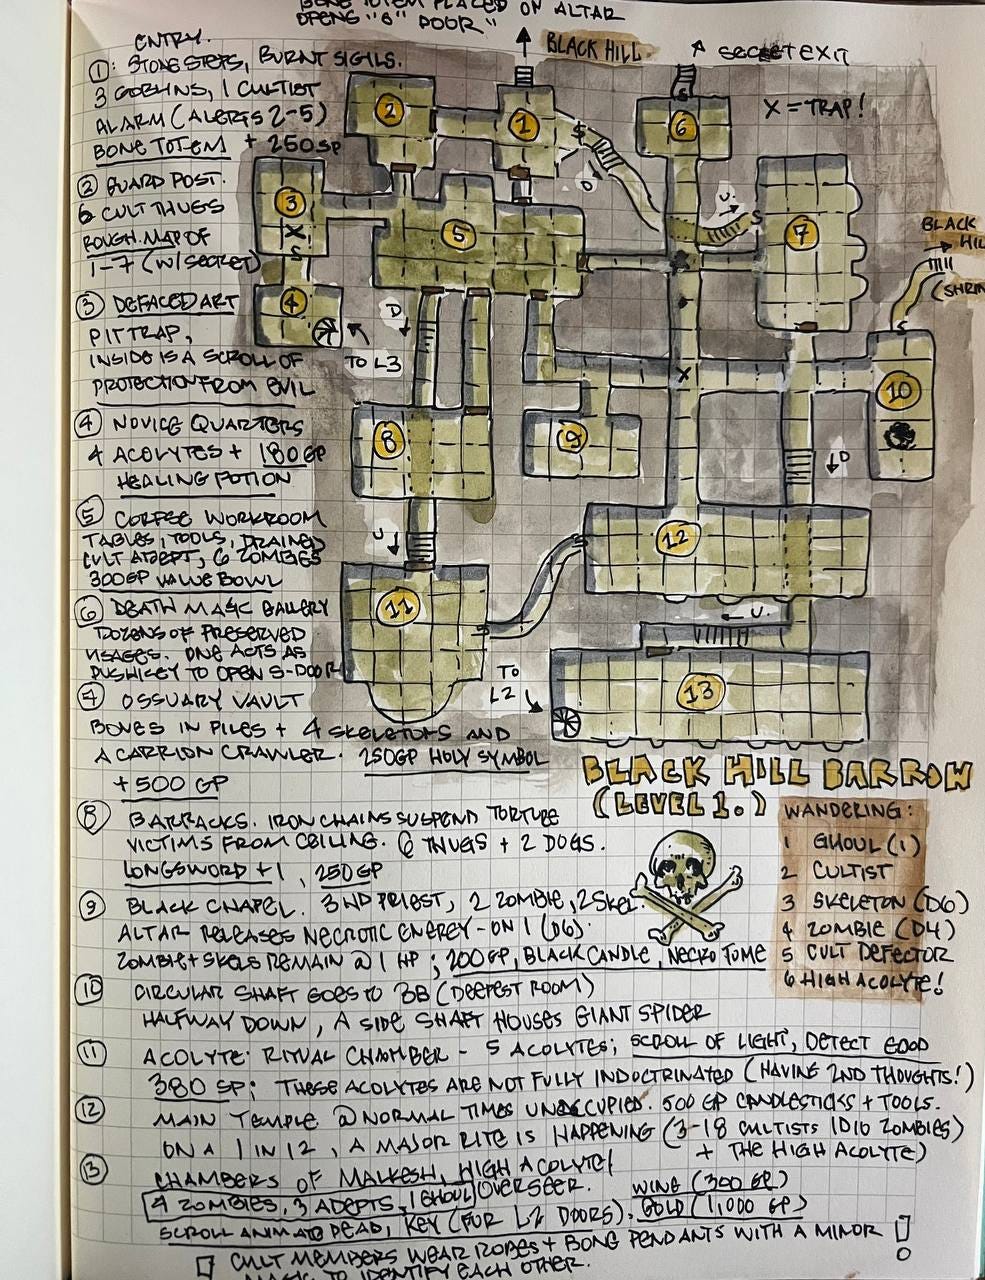 BONE TOTEM PLACED ON ALTAR
OPENS "6" DOOR"
ENTRY.
①: STONE STEPS, BURNT SIGILS.
3 GOBLINS, 1 CULTIST
ALARM (ALERTS 2-5)
BONE TOTEM + 250SP
② GUARD POST.
6 CULT THUGS
ROUGH MAP OF
1-7 (W/SECRET)
③ DEFACED ART
PIT TRAP,
INSIDE IS A SCROLL OF
PROTECTION FROM EVIL
④ NOVICE QUARTERS
4 ACOLYTES + 180GP
HEALING POTION
⑤ CORPSE WORKROOM
TABLES, TOOLS, DRAINED
CULT ADEPT, 6 ZOMBIES
300GP VALUE BOWL
⑥ DEATH MASK GALLERY
DOZENS OF PRESERVED
VISAGES. ONE ACTS AS
PUSHKEY TO OPEN S-DOOR
⑦ OSSUARY VAULT
BONES IN PILES + 4 SKELETONS AND
A CARRION CRAWLER. 250GP HOLY SYMBOL
+ 500 GP
⑧ BARRACKS. IRON CHAINS SUSPEND TORTURE
VICTIMS FROM CEILING. 6 THUGS + 2 DOGS.
LONGSWORD +1, 250GP
⑨ BLACK CHAPEL. 3 ND PRIEST, 2 ZOMBIE, 2 SKEL.
ALTAR RELEASES NECROTIC ENERGY - ON 1 (D6).
ZOMBIE + SKELS REMAIN @ 1 HP; 200GP, BLACK CANDLE, NECRO TOME
⑩ CIRCULAR SHAFT GOES TO 3B (DEEPEST ROOM)
HALFWAY DOWN, A SIDE SHAFT HOUSES GIANT SPIDER
⑪ ACOLYTE RITUAL CHAMBER - 5 ACOLYTES; SCROLL OF LIGHT, DETECT GOOD
380 SP; THESE ACOLYTES ARE NOT FULLY INDOCTRINATED (HAVING 2ND THOUGHTS!)
⑫ MAIN TEMPLE @ NORMAL TIMES UNOCCUPIED. 500 GP CANDLESTICKS + TOOLS.
ON A 1 IN 12, A MAJOR RITE IS HAPPENING (3-18 CULTISTS 1D10 ZOMBIES)
+ THE HIGH ACOLYTE)
⑬ CHAMBERS OF MALKESH, HIGH ACOLYTE/
4 ZOMBIES, 3 ADEPTS, 1 GHOUL/OVERSEER. WINE (300 GP)
SCROLL ANIMATE DEAD, KEY (FOR L2 DOORS). GOLD (1,000 GP)
CULT MEMBERS WEAR ROBES + BONE PENDANTS WITH A MINOR !
MAGIC TO IDENTIFY EACH OTHER.
BLACK HILL
SECRET EXIT
X = TRAP!
1
2
3
4
5
6
7
8
9
10
11
12
13
X
X
S
S
S
S
S
D
U
D
U
D
U
TO L3
BLACK
HILL
(SHRINE
TO
L2
BLACK HILL BARROW
(LEVEL 1.)
WANDERING:
1 GHOUL (1)
2 CULTIST
3 SKELETON (D6)
4 ZOMBIE (D4)
5 CULT DEFECTOR
6 HIGH ACOLYTE!